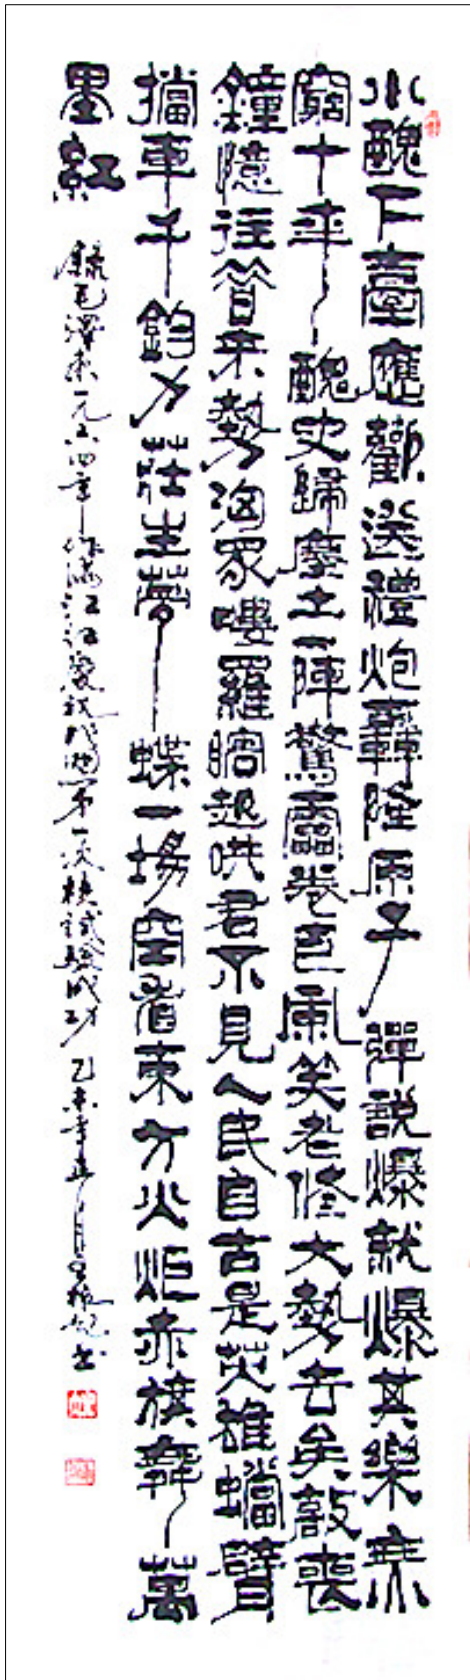 小醜下臺應歡送禮炮轟隆原子彈說爆就爆其樂無
窮十年醜史歸塵土一陣驚雷卷巨風笑老修大勢去矣敲喪
鐘憶往昔來勢洶眾嘍羅瞎起哄君不見人民自古是英雄螳臂
擋車千鈞力莊生夢蝶一場空看東方火炬赤旗舞萬
里紅 錄毛澤東一九六四年作滿江紅慶祝我國第一次核試驗成功 乙未年正月書